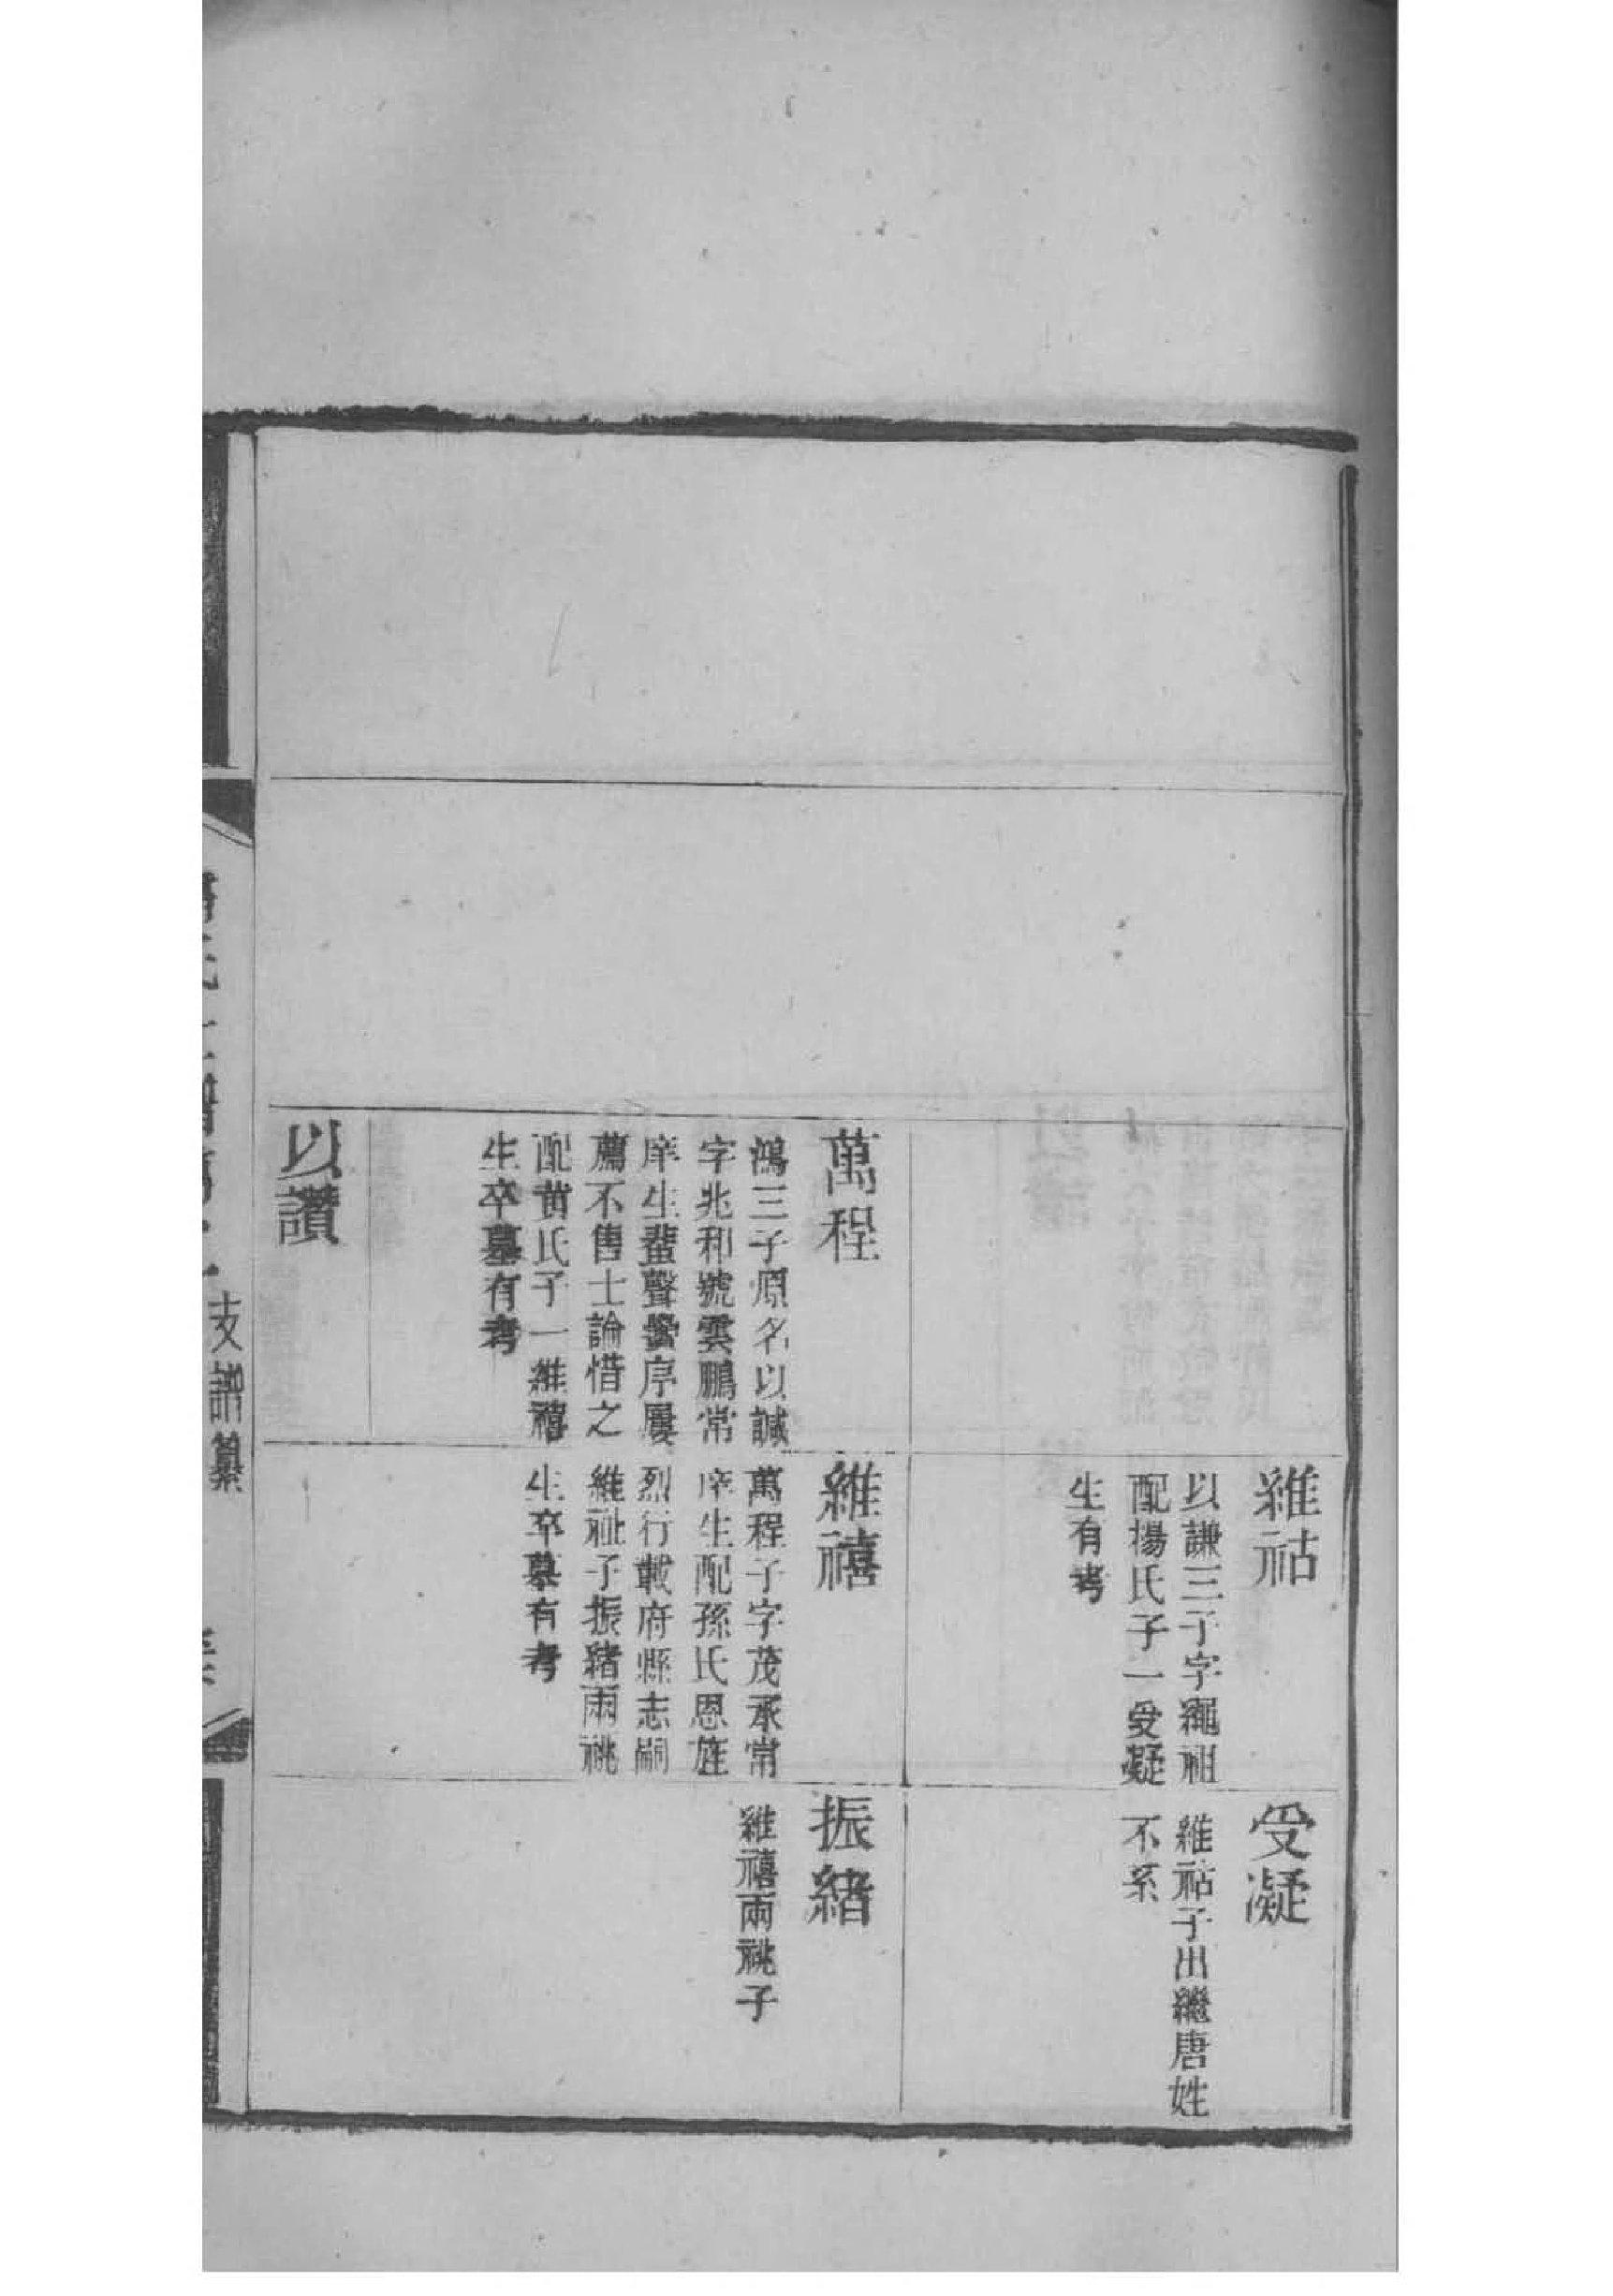 維祜
以謙三子字繩祖
配楊氏子一受凝
生有考
受凝
維祜子出繼唐姓
不系
萬程
鴻三子原名以誠
字兆和號雲鵬常
庠生蜚聲黌序屢
薦不售士論惜之
配黃氏子一維禧
生卒墓有考
維禧
萬程子字茂承常
庠生配孫氏恩旌
烈行載府縣志嗣
維祉子振緒兩祧
生卒墓有考
振緒
維禧兩祧子
以讚
支譜纂